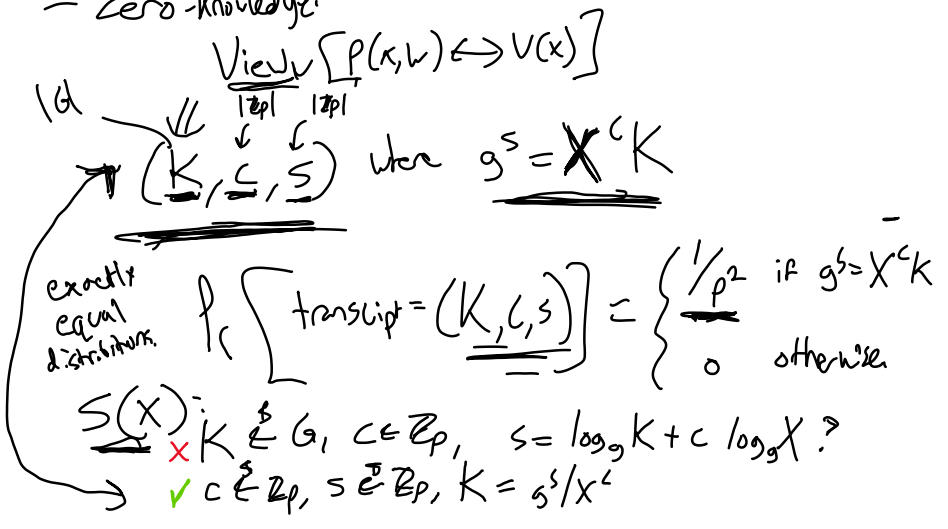 – Zero-knowledge:
View_V [P(x,w) ↔ V(x)]
|G| |Zp| |Zp|
(K, c, s) where g^s = X^c K
exactly
equal
distributions.
Pr [transcript = (K, c, s)] = { 1/p^2 if g^s = X^c K
0 otherwise
S(X):
× K ←$ G, c ← Zp, s = log_g K + c log_g X ?
✓ c ←$ Zp, s ←$ Zp, K = g^s/X^c